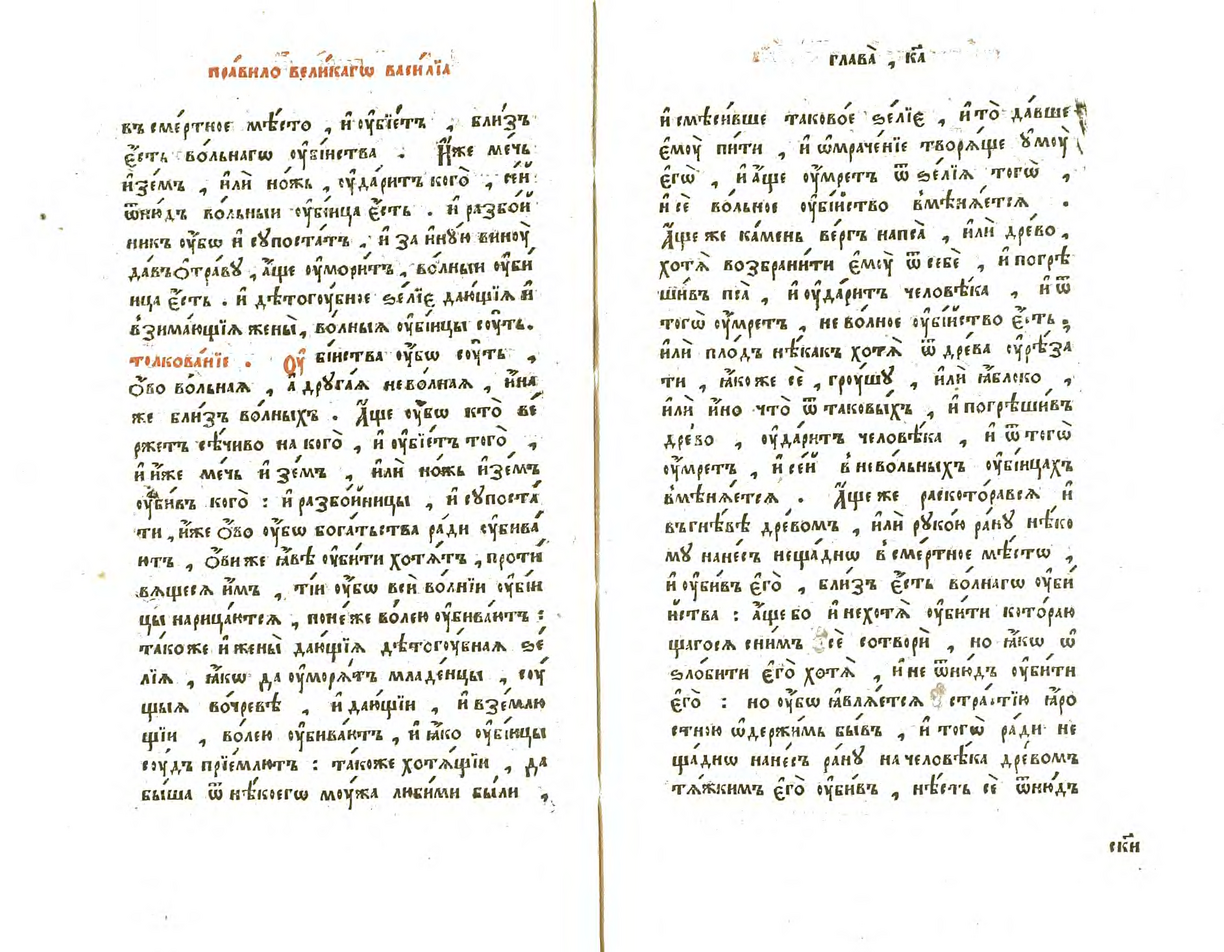 пра́вило вели́кагѡ васи́лїа
въ сме́ртное мѣ́сто , и҆ оу҆бїе́тъ , бли́зъ
є҆́сть во́льнагѡ оу҆бі́йства . И҆́же ме́чь
и҆зе́мъ , и҆лѝ но́жь , оу҆да́ритъ кого̀ , се́й
ѿню́дъ во́льный оу҆бі́йца є҆́сть . и҆ разбо́й
никъ оу҆́бѡ и҆ супоста́тъ , и҆ за и҆ну́ю виноу̀
да́въ ѻ҆тра́ву , а҆́ще оу҆мори́тъ , во́лныи оу҆би́
ица є҆́сть . и҆ дѣтогоу́бное ѕе́лїе даю́щїѧ и҆
взима́ющїѧ жены̀ , во́лныѧ оу҆бі́ицы соу́ть .
толкова́нїе . Оу҆ бі́йства оу҆́бѡ соу́ть ,
ѻ҆́во во́льнаѧ , а҆ друга́ѧ нево́лнаѧ , и҆́на
же бли́зъ во́лныхъ . А҆́ще оу҆́бѡ кто̀ ве́
ржетъ сѣ́чиво на кого̀ , и҆ оу҆бїе́тъ того̀ ,
и҆ и҆́же ме́чь и҆зе́мъ , и҆лѝ но́жь и҆зе́мъ
оу҆би́въ кого̀ : и҆ разбо́йницы , и҆ супоста́
ти , и҆́же ѻ҆́во оу҆́бѡ бога́тьства ра́ди оу҆бива́
ютъ , ѻ҆́ви же ꙗ҆́вѣ оу҆би́ти хотѧ́тъ , проти́
вѧщесѧ и҆́мъ , ті́и оу҆́бѡ всѝ во́лнїи оу҆бі́й
цы нарица́ютсѧ , поне́же во́лею оу҆бива́ютъ :
та́коже и҆ жены̀ даю́щїѧ дѣтогоу́бнаѧ ѕе́
лїѧ , ꙗ҆́кѡ да оу҆морѧ́тъ младе́нцы , соу́
щыѧ во́чревѣ , и҆ даю́щїи , и҆ взе́млю
щїи , во́лею оу҆бива́ютъ , и҆ ꙗ҆́ко оу҆бі́йцы
соу́дъ прїе́млютъ : та́коже хотѧ́щїи , да
бы́ша ѿ нѣ́коегѡ моу́жа люби́ми бы́ли ,
глава̀ , к҃а
и҆ смѣси́вше таково́е ѕе́лїе , и҆ то̀ да́вше
є҆моу̀ пи́ти , и҆ ѡ҆мраче́нїе творѧ́ще оу҆моу̀
є҆гѡ̀ , и҆ а҆́ще оу҆́мретъ ѿ ѕе́лїѧ тогѡ̀ ,
и҆ сѐ во́льное оу҆бі́йство вмѣнѧ́етсѧ .
А҆́ще же ка́мень ве́ргъ на пса̀ , и҆лѝ дре́во ,
хотѧ̀ возбрани́ти є҆моу̀ ѿ себѐ , и҆ погрѣ
ши́въ пса̀ , и҆ оу҆да́ритъ человѣ́ка , и҆ ѿ
тогѡ̀ оу҆́мретъ , не во́лное оу҆бі́йство є҆́сть ,
и҆лѝ пло́дъ нѣ́какъ хотѧ̀ ѿ дре́ва оу҆рѣ́за
ти , ꙗ҆́ко же сѐ , гроу́шу , и҆лѝ ꙗ҆́блоко ,
и҆лѝ и҆́но что̀ ѿ таковы́хъ , и҆ погрѣши́въ
дре́во , оу҆да́ритъ человѣ́ка , и҆ ѿ тогѡ̀
оу҆́мретъ , и҆ се́й в нево́льныхъ оу҆бі́йцахъ
вмѣнѧ́етсѧ . А҆́ще же раскотора́всѧ и҆
въ гнѣ́вѣ дре́вомъ , и҆лѝ руко́ю ра́ну нѣ́ко
му нане́съ неща́днѡ в сме́ртное мѣ́стѡ ,
и҆ оу҆би́въ є҆го̀ , бли́зъ є҆́сть во́лнагѡ оу҆би́
йства : а҆́ще бо и҆ нехотѧ̀ оу҆би́ти котора́ю
щагосѧ сни́мъ сѐ сотворѝ , но ꙗ҆́кѡ ѡ҆
ѕло́бити є҆го̀ хотѧ̀ , и҆ не ѿню́дъ оу҆би́ти
є҆го̀ : но оу҆́бѡ ꙗ҆влѧ́етсѧ стра́стїю ꙗ҆́ро
стною ѡ҆держи́мь бы́въ , и҆ тогѡ̀ ра́ди не
ща́днѡ нане́съ ра́ну на человѣ́ка дре́вомъ
тѧ́жкимъ є҆го̀ оу҆би́въ , нѣ́сть сѐ ѿню́дъ
ск҃и